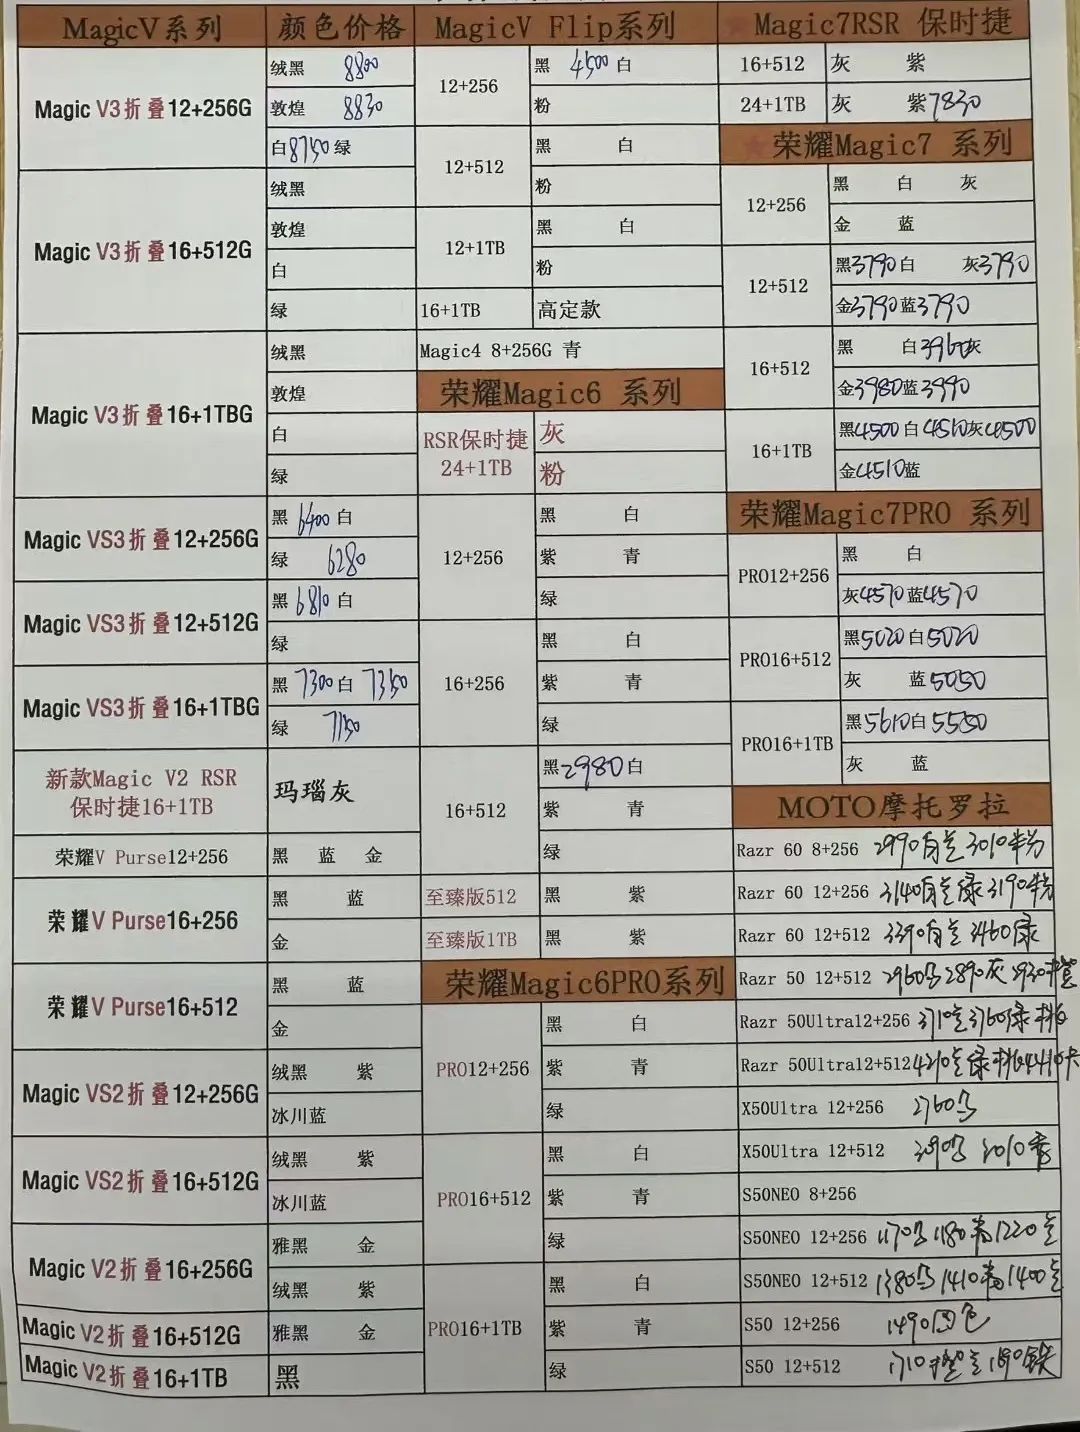 MagicV系列 颜色价格
Magic V3折叠12+256G
绒黑 8800
敦煌 8830
白8750绿
Magic V3折叠16+512G
绒黑
敦煌
白
绿
Magic V3折叠16+1TBG
绒黑
敦煌
白
绿
Magic VS3折叠12+256G
黑 6400 白
绿 6280
Magic VS3折叠12+512G
黑 6810 白
绿
Magic VS3折叠16+1TBG
黑 7300 白 7350
绿 7150
新款Magic V2 RSR
保时捷16+1TB
玛瑙灰
荣耀V Purse12+256
黑 蓝 金
荣耀V Purse16+256
黑 蓝
金
荣耀V Purse16+512
黑 蓝
金
Magic VS2折叠12+256G
绒黑 紫
冰川蓝
Magic VS2折叠12+512G
绒黑 紫
冰川蓝
Magic V2折叠16+256G
雅黑 金
绒黑 紫
Magic V2折叠16+512G
雅黑 金
Magic V2折叠16+1TB
黑
MagicV Flip系列
12+256
黑 4500 白
粉
12+512
黑 白
粉
12+1TB
黑 白
粉
16+1TB 高定款
Magic4 8+256G 青
荣耀Magic6 系列
RSR保时捷
24+1TB
灰
粉
12+256
黑 白
紫 青
绿
16+256
黑 白
紫 青
绿
16+512
黑2980白
紫 青
绿
至臻版512 黑 紫
至臻版1TB 黑 紫
荣耀Magic6PRO系列
PRO12+256
黑 白
紫 青
绿
PRO16+512
黑 白
紫 青
绿
PRO16+1TB
黑 白
紫 青
绿
Magic7RSR 保时捷
16+512 灰 紫
24+1TB 灰 紫7830
荣耀Magic7 系列
12+256
黑 白 灰
金 蓝
12+512
黑3790白 灰3790
金3790蓝3790
16+512
黑 白3960灰
金3980蓝3990
16+1TB
黑4500白4510灰4500
金4510蓝
荣耀Magic7PRO 系列
PRO12+256
黑 白
灰4570蓝4570
PRO16+512
黑5020白5020
灰 蓝5050
PRO16+1TB
黑5610白5550
灰 蓝
MOTO摩托罗拉
Razr 60 8+256 2990 3010粉
Razr 60 12+256 3140 绿 3190粉
Razr 60 12+512 3390 3460绿
Razr 50 12+512 2960 2890灰 2930橙
Razr 50Ultra12+256 3710 3760绿
Razr 50Ultra12+512 4210 绿 4410
X50Ultra 12+256 2760
X50Ultra 12+512 3010
S50NEO 8+256
S50NEO 12+256 1170 1180 1220
S50NEO 12+512 1380 1410 1400
S50 12+256 1490
S50 12+512 1710 1690